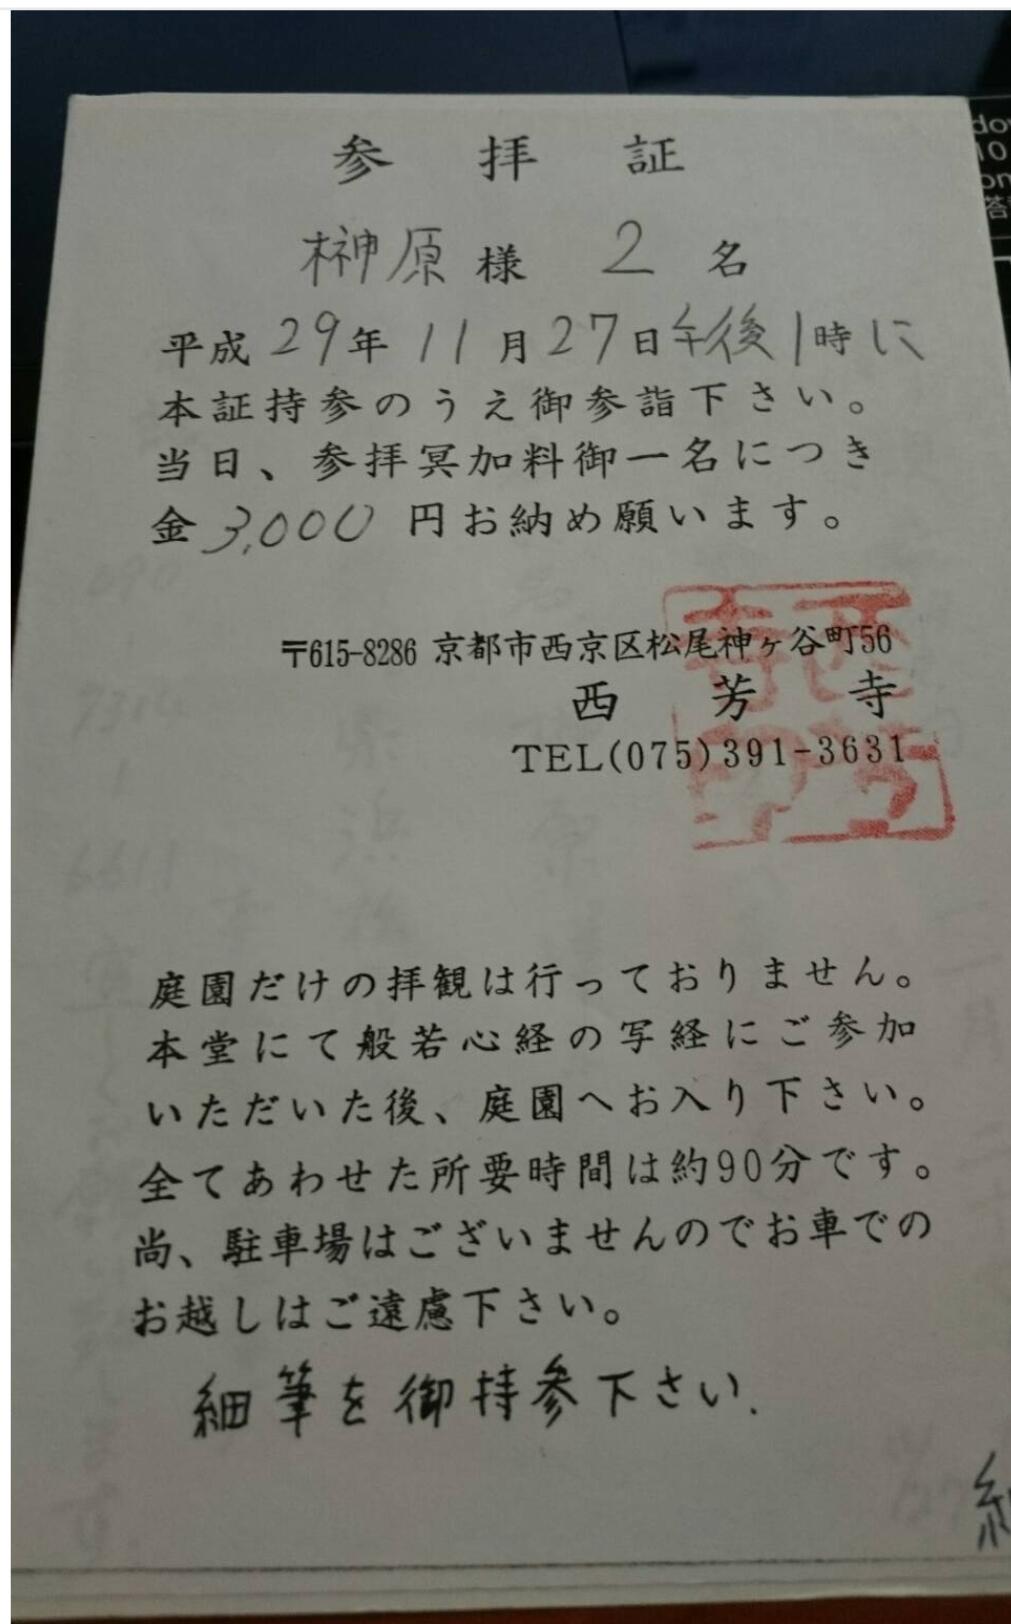 参拝証
榊原様 2名
平成29年11月27日午後1時に
本証持参のうえ御参詣下さい。
当日、参拝冥加料御一名につき
金3,000円お納め願います。
〒615-8286 京都市西京区松尾神ヶ谷町56
西芳寺
TEL(075)391-3631
庭園だけの拝観は行っておりません。
本堂にて般若心経の写経にご参加
いただいた後、庭園へお入り下さい。
全てあわせた所要時間は約90分です。
尚、駐車場はございませんのでお車での
お越しはご遠慮下さい。
細筆を御持参下さい.